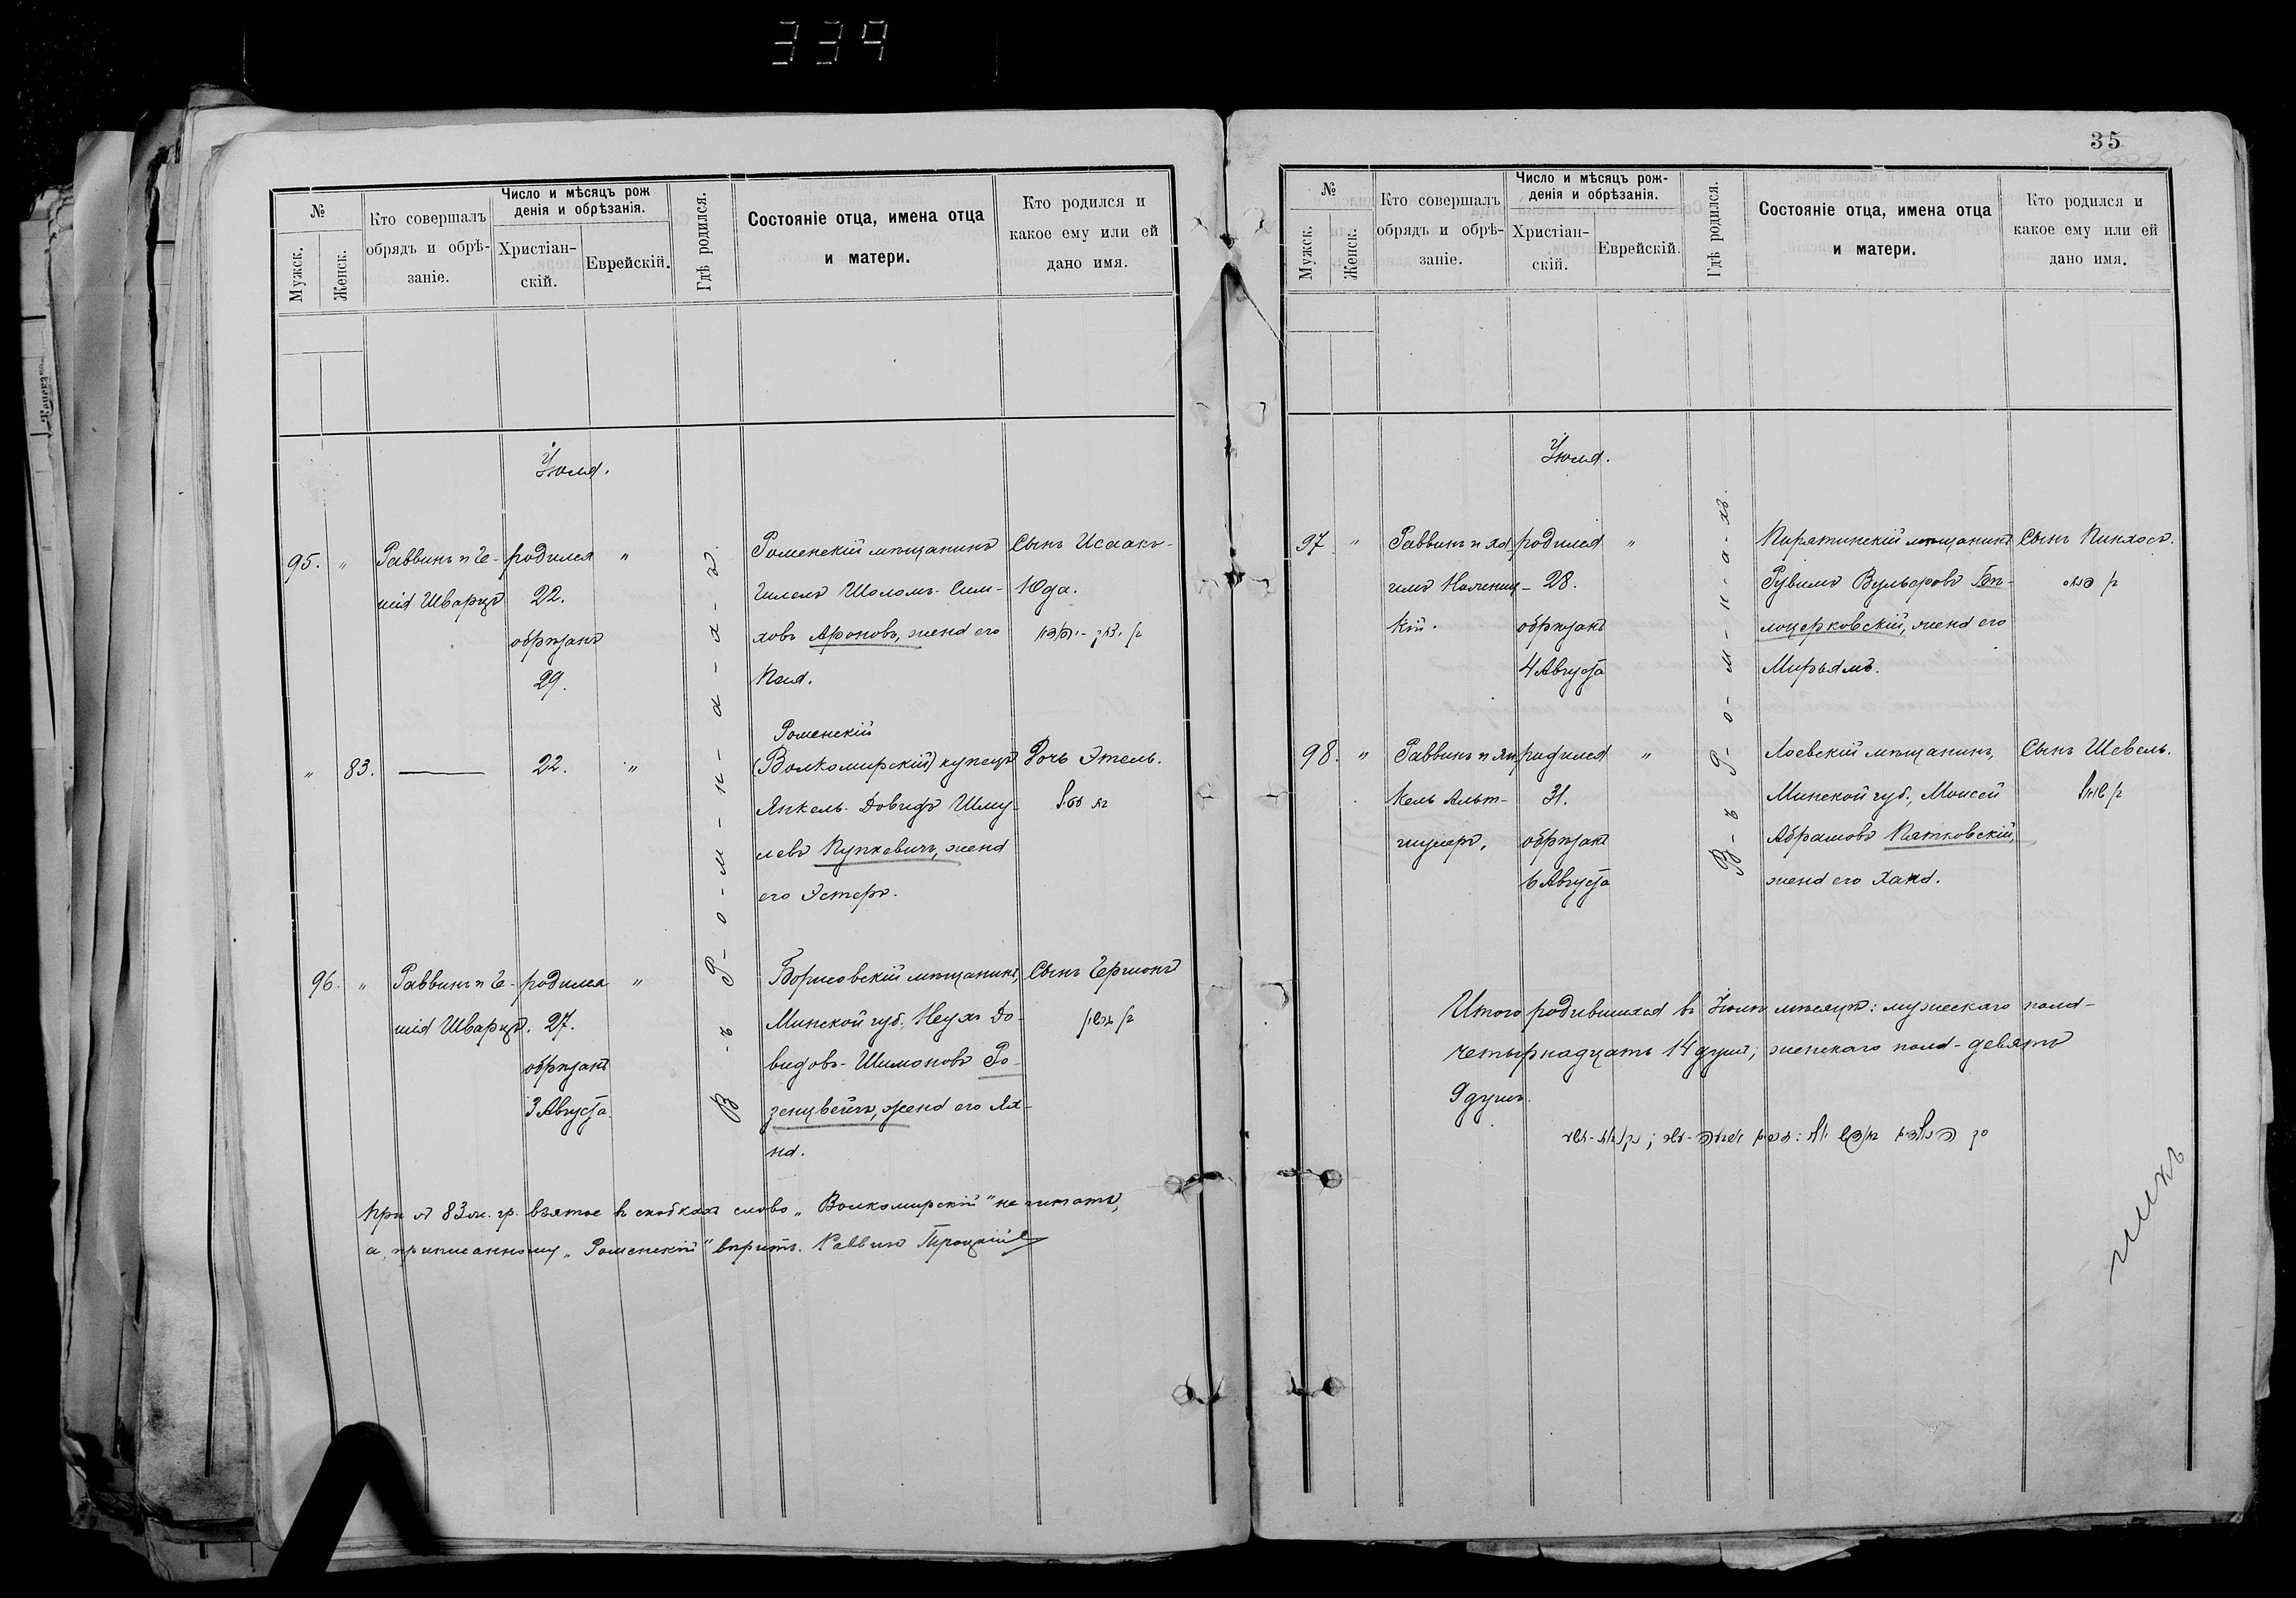 339
№
Мужск.
Женск.
Кто совершалъ
обрядъ и обрѣ-
заніе.
Число и мѣсяцъ рож
денія и обрѣзанія.
Христіан-
скій.
Еврейскій.
Гдѣ родился.
Состояніе отца, имена отца
и матери.
Кто родился и
какое ему или ей
дано имя.
Іюля.
95. "
Раввинъ и Іе-
шія Шварцъ
родился "
22.
обрѣзанъ
29.
Роменскій мѣщанинъ
Гилелъ Шоломъ-Сим-
ховъ Ароновъ, жена его
Пая.
Сынъ Исаакъ-
Юда.
" 83.
22. "
Роменскій
(Волкомирскій) купецъ
Янкель-Довидъ Шму-
левъ Купкевичъ, жена
его Эстеръ.
Дочь Этель.
96. "
Раввинъ и Іе-
шія Шварцъ.
родился "
27.
обрѣзанъ
3 Августа
Борисовскій мѣщанинъ,
Минской губ. Неухъ До-
видовъ-Шимоновъ Ро-
зенцвейгъ, жена его Ха-
на.
Сынъ Гершонъ
В-ъ Р-о-м-н-а-х-ъ.
При № 83 ж. гр. взятое въ скобкахъ слово "Волкомирскій" не читать,
а приписанному "Роменскій" вѣрить. Раввинъ Троцкій
35
№
Мужск.
Женск.
Кто совершалъ
обрядъ и обрѣ-
заніе.
Число и мѣсяцъ рож-
денія и обрѣзанія.
Христіан-
скій.
Еврейскій.
Гдѣ родился.
Состояніе отца, имена отца
и матери.
Кто родился и
какое ему или ей
дано имя.
Іюля.
97. "
Раввинъ и
кій.
родился "
28.
обрѣзанъ
4 Августа
Пирятинскій мѣщанинъ
Рувимъ Вульфовъ Бѣ-
лоцерковскій, жена его
Мирьямъ.
Сынъ Пинхосъ.
98. "
Раввинъ и Ян-
кель Альт-
шулеръ.
родился "
31.
обрѣзанъ
6 Августа
Лоевскій мѣщанинъ,
Минской губ., Моисей
Абрамовъ Пятковскій,
жена его Хана.
Сынъ Шевель.
В-ъ Р-о-м-н-а-хъ.
Итого родившихся въ Іюлѣ мѣсяцѣ: мужескаго пола-
четырнадцать 14 душъ; женскаго пола-девять
9 душъ.